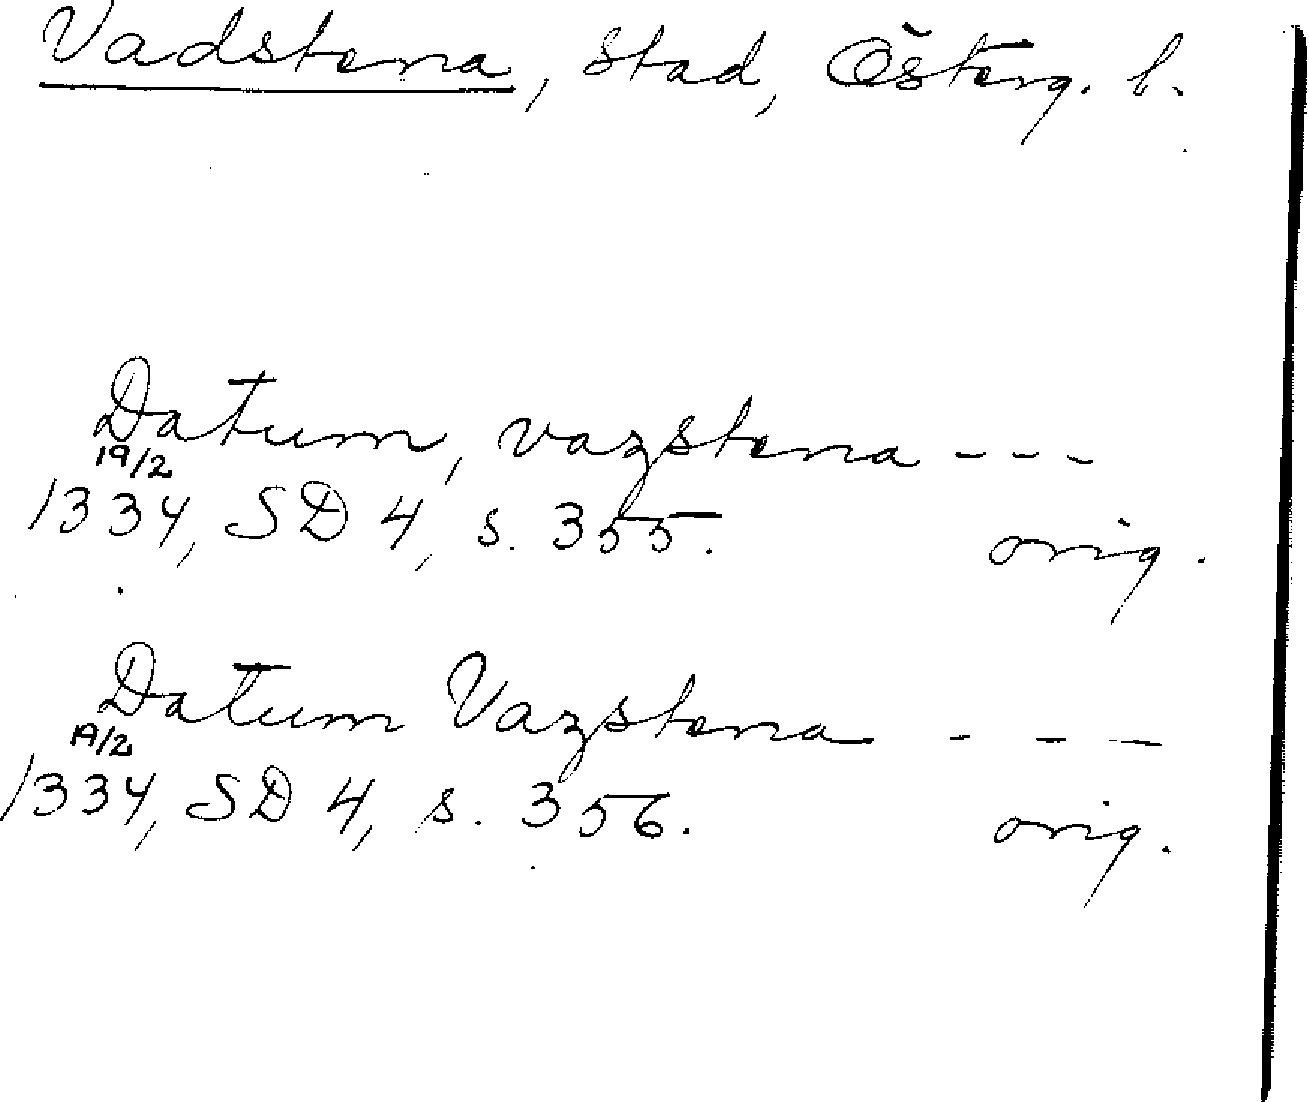 Vadstena, stad, Österg. l.
Datum, vazstena ---
19/2
1334, SD 4, s. 355. orig.
Datum Vazstena - - -
19/2
1334, SD 4, s. 356. orig.